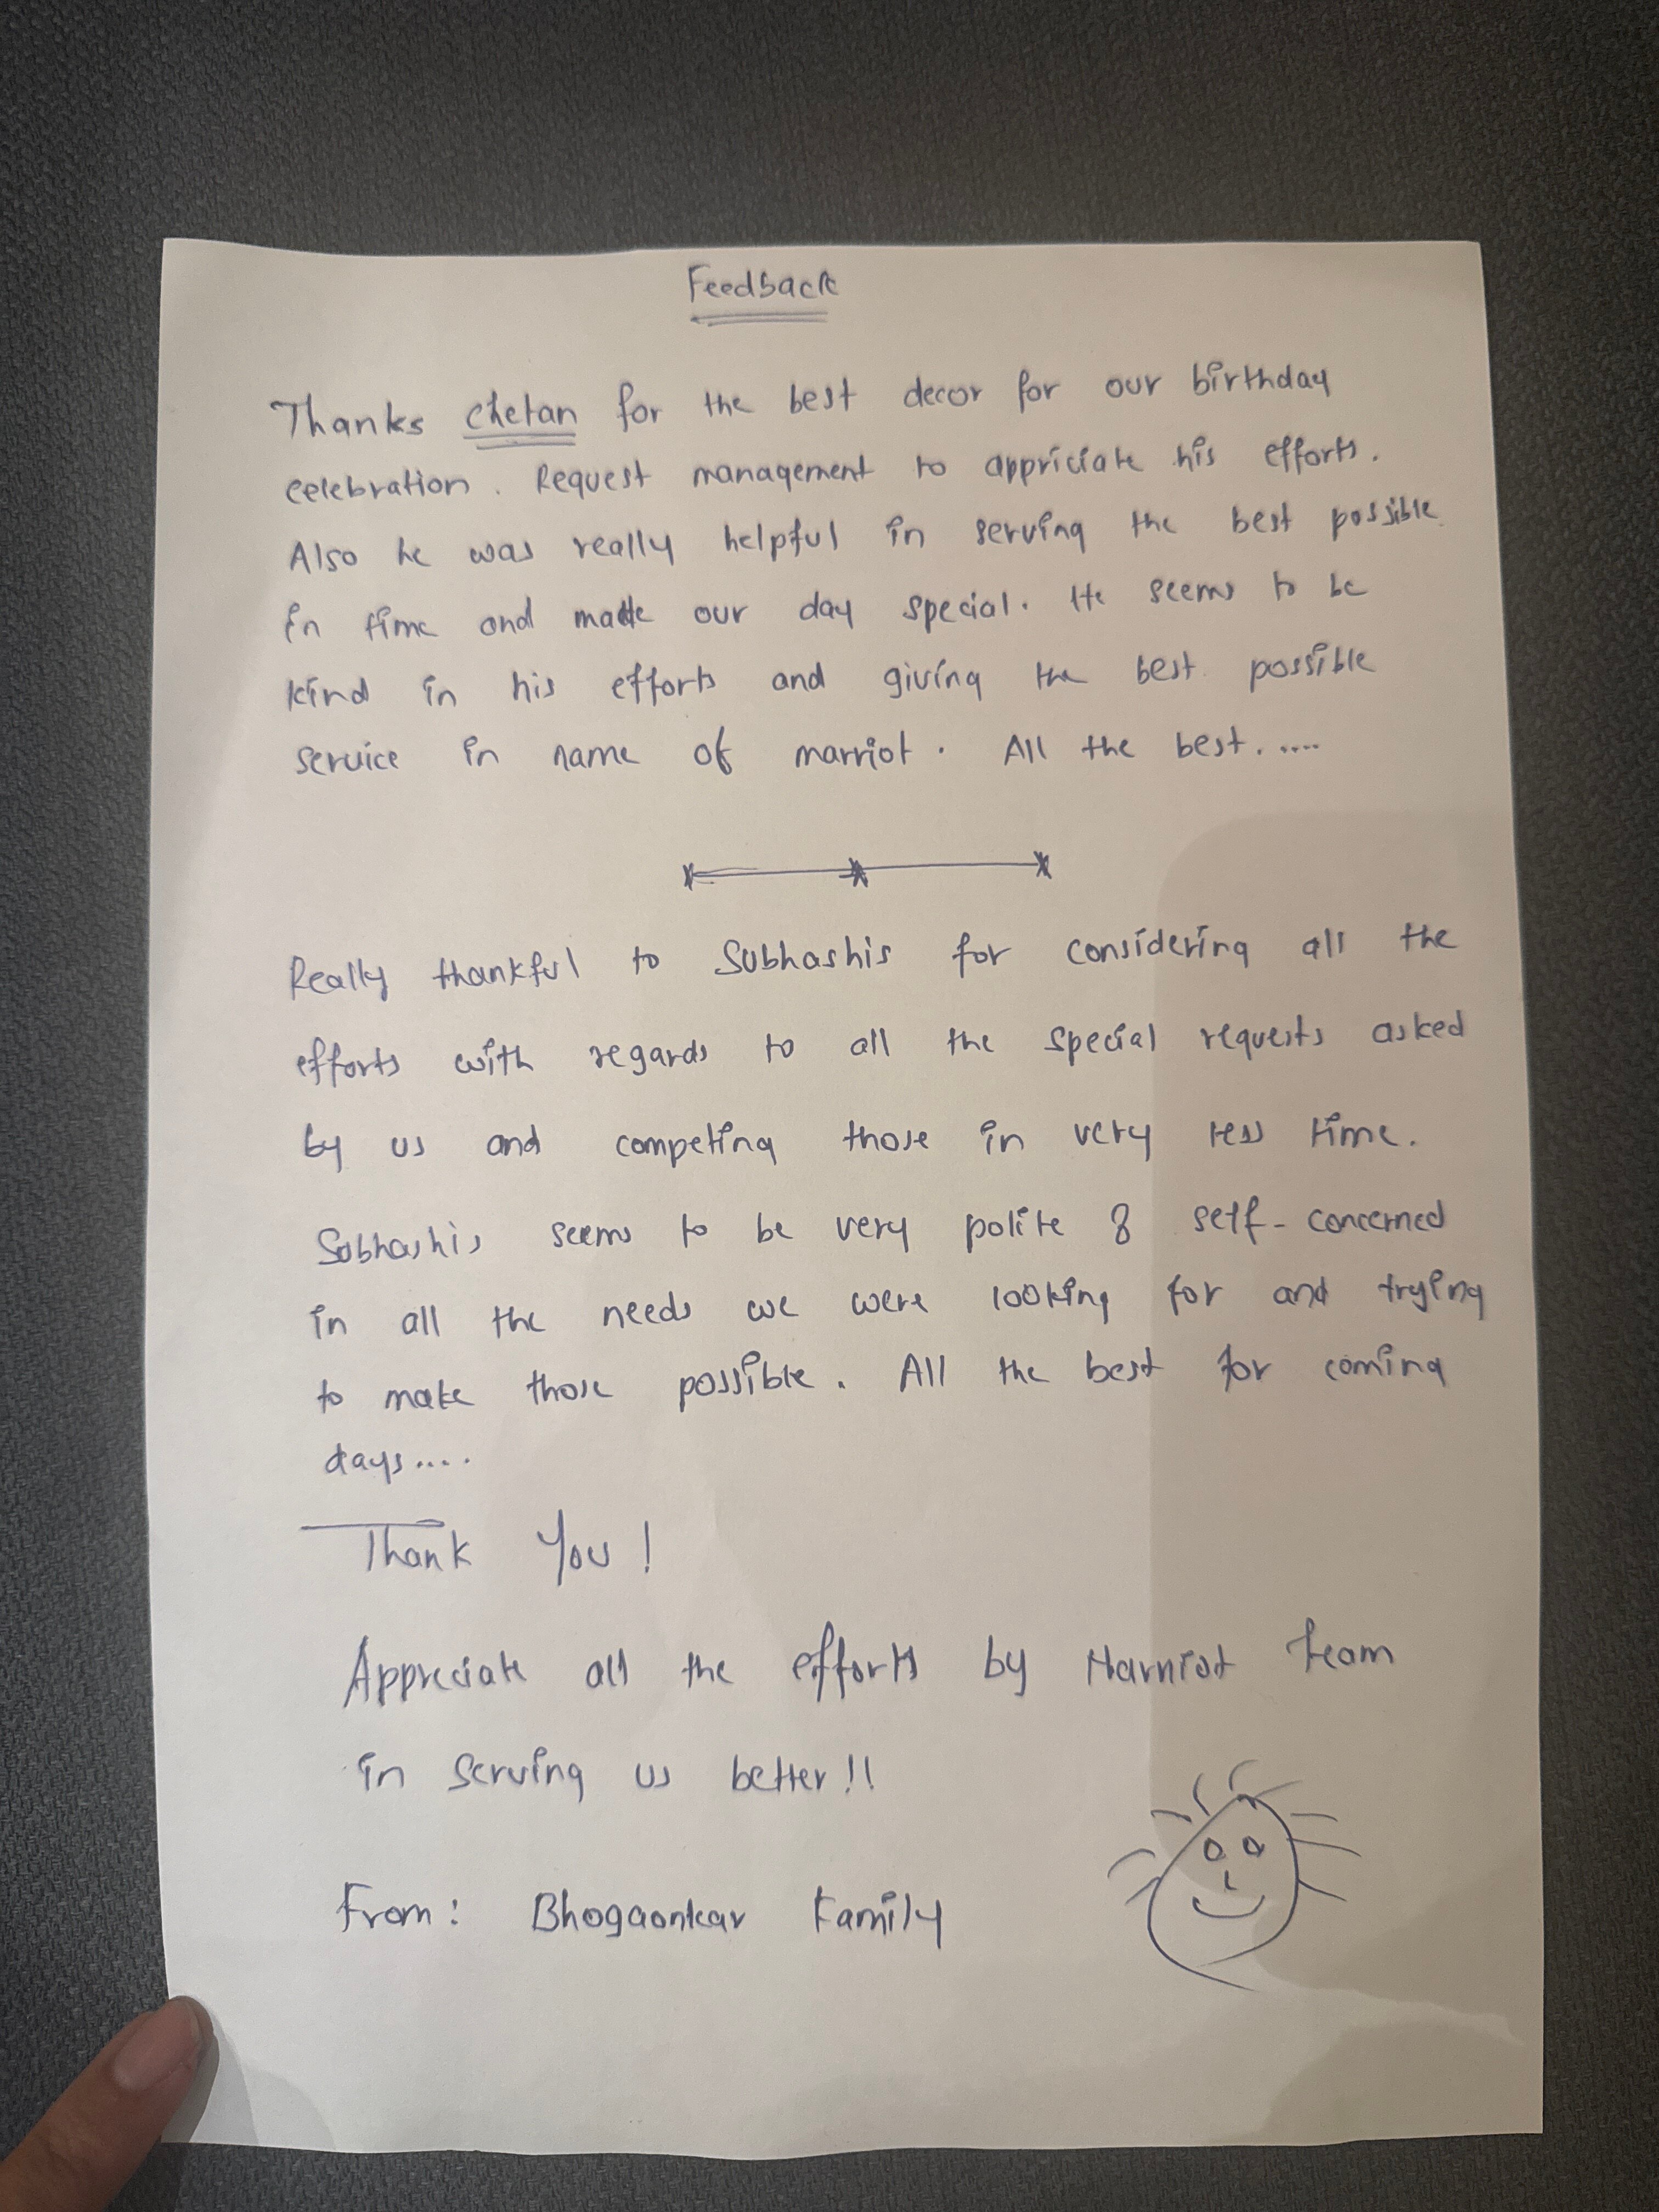 Feedback
Thanks chetan for the best decor for our birthday
celebration. Request management to appriciate his efforts.
Also he was really helpful in serving the best possible
in time and made our day special. He seems to be
kind in his efforts and giving the best possible
service in name of marriot. All the best.....
Really thankful to Subhashis for considering all the
efforts with regards to all the special requests asked
by us and competing those in very less time.
Subhashis seems to be very polite & self-concerned
in all the needs we were looking for and trying
to make those possible. All the best for coming
days....
Thank You!
Appreciate all the efforts by Marriot team
in serving us better!!
From: Bhogaonkar Family